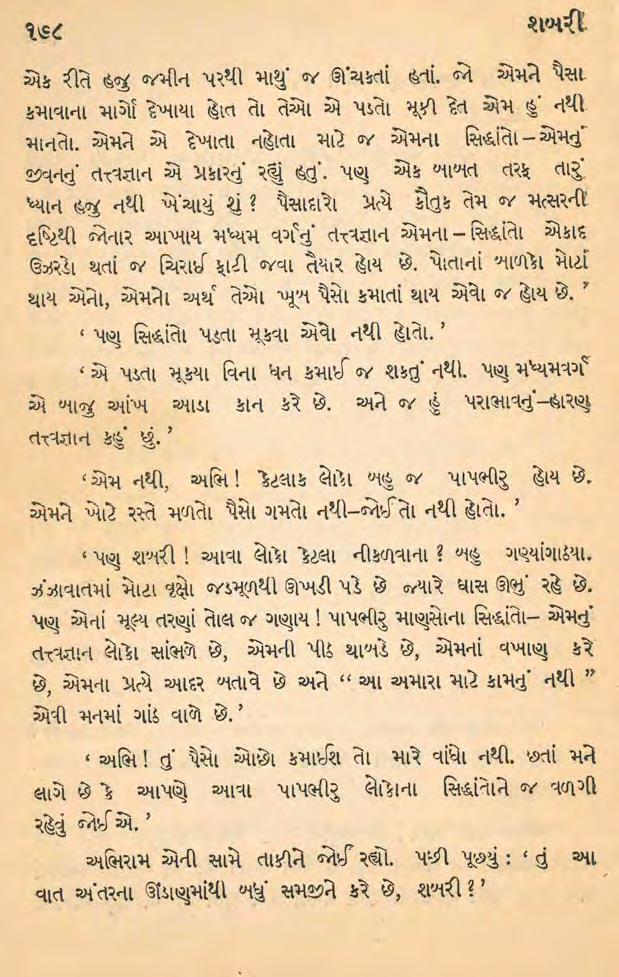 ૧૭૮ શબરી
એક રીતે હજુ જમીન પરથી માથું જ ઊંચકતાં હતાં. જો એમને પૈસા
કમાવાના માર્ગો દેખાયા હોત તો તેઓ એ પડતો મૂકી દેત એમ હું નથી
માનતો. એમને એ દેખાતા નહોતા માટે જ એમના સિદ્ધાંતો – એમનું
જીવનનું તત્ત્વજ્ઞાન એ પ્રકારનું રહ્યું હતું. પણ એક બાબત તરફ તારું
ધ્યાન હજુ નથી ખેંચાયું શું ? પૈસાદારો પ્રત્યે કૌતુક તેમ જ મત્સરની
દૃષ્ટિથી જોનાર આખાય મધ્યમ વર્ગનું તત્ત્વજ્ઞાન એમના – સિદ્ધાંતો એકાદ
ઉઝરડો થતાં જ ચિરાઈ ફાટી જવા તૈયાર હોય છે. પોતાનાં બાળકો મોટાં
થાય એનો, એમનો અર્થ તેઓ ખૂબ પૈસો કમાતાં થાય એવો જ હોય છે. ’
‘ પણ સિદ્ધાંતો પડતા મૂકવા એવો નથી હોતો. ’
‘ એ પડતા મૂક્યા વિના ધન કમાઈ જ શકાતું નથી. પણ મધ્યમવર્ગ
એ બાજુ આંખ આડા કાન કરે છે. અને જ હું પરાભાવનું–હારણ
તત્ત્વજ્ઞાન કહું છું. ’
‘ એમ નથી, અભિ ! કેટલાક લોકો બહુ જ પાપભીરુ હોય છે.
એમને ખોટે રસ્તે મળતો પૈસો ગમતો નથી–જોઈતો નથી હોતો. ’
‘ પણ શબરી ! આવા લોકો કેટલા નીકળવાના ? બહુ ગણ્યાંગાંઠ્યા.
ઝંઝાવાતમાં મોટા વૃક્ષો જડમૂળથી ઊખડી પડે છે જ્યારે ઘાસ ઊભું રહે છે.
પણ એનાં મૂલ્ય તરણાં તોલ જ ગણાય ! પાપભીરુ માણસોના સિદ્ધાંતો– એમનું
તત્ત્વજ્ઞાન લોકો સાંભળે છે, એમની પીઠ થાબડે છે, એમનાં વખાણ કરે
છે, એમના પ્રત્યે આદર બતાવે છે અને “ આ અમારા માટે કામનું નથી ”
એવી મનમાં ગાંઠ વાળે છે.’
‘ અભિ ! તું પૈસો ઓછો કમાઈશ તો મારે વાંધો નથી. છતાં મને
લાગે છે કે આપણે આવા પાપભીરુ લોકોના સિદ્ધાંતોને જ વળગી
રહેવું જોઈએ. ’
અભિરામ એની સામે તાકીને જોઈ રહ્યો. પછી પૂછ્યું : ‘ તું આ
વાત અંતરના ઊંડાણમાંથી બધું સમજીને કરે છે, શબરી ? ’